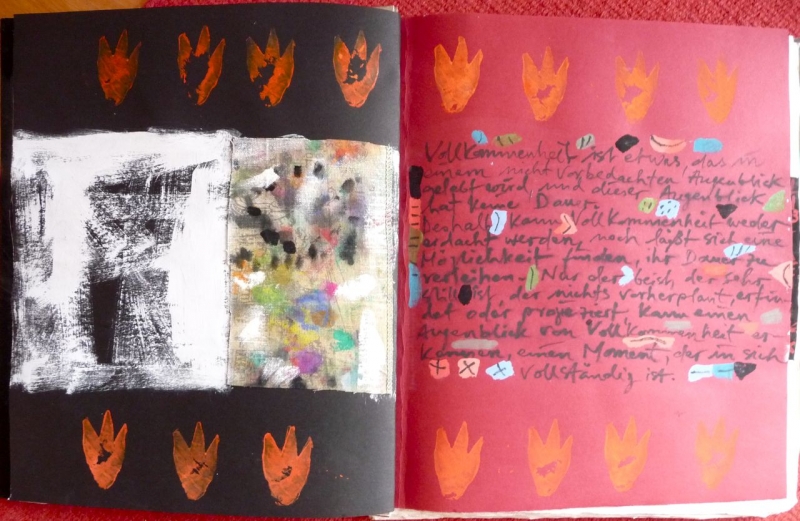 Vollkommenheit ist etwas, das in
einem nicht vorbedachten Augenblick
gelebt wird, und dieser Augenblick
hat keine Dauer.
Deshalb kann Vollkommenheit weder
erdacht werden, noch läßt sich eine
Möglichkeit finden, ihr Dauer zu
verleihen. Nur der der sehr
still ist, der nichts vorherplant, erfin
det oder projeziert, kann einen
Augenblick von Vollkommenheit er-
kennen, einen Moment, der in sich
vollständig ist.